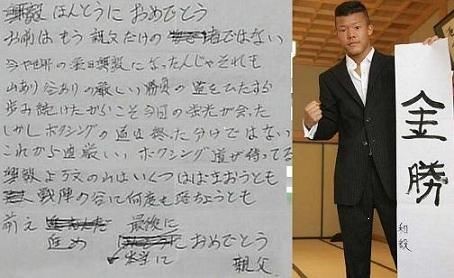 興毅 ほんとうに おめでとう
お前はもう親父だけの者ではない
今や世界の亀田興毅になったんじゃそれも
山あり谷ありの厳しい勝負の道をひたすら
歩み続けたからこそ今日の栄光が会った
しかしボクシングの道は終った分けではない
これから尚厳しいボクシング道が待ってる
興毅よ万丈の山はいくつはばまおうとも
戦陣の谷に何度も落ちようとも
前え 最後に
進め おめでとう
本当に 親父
金勝
和毅